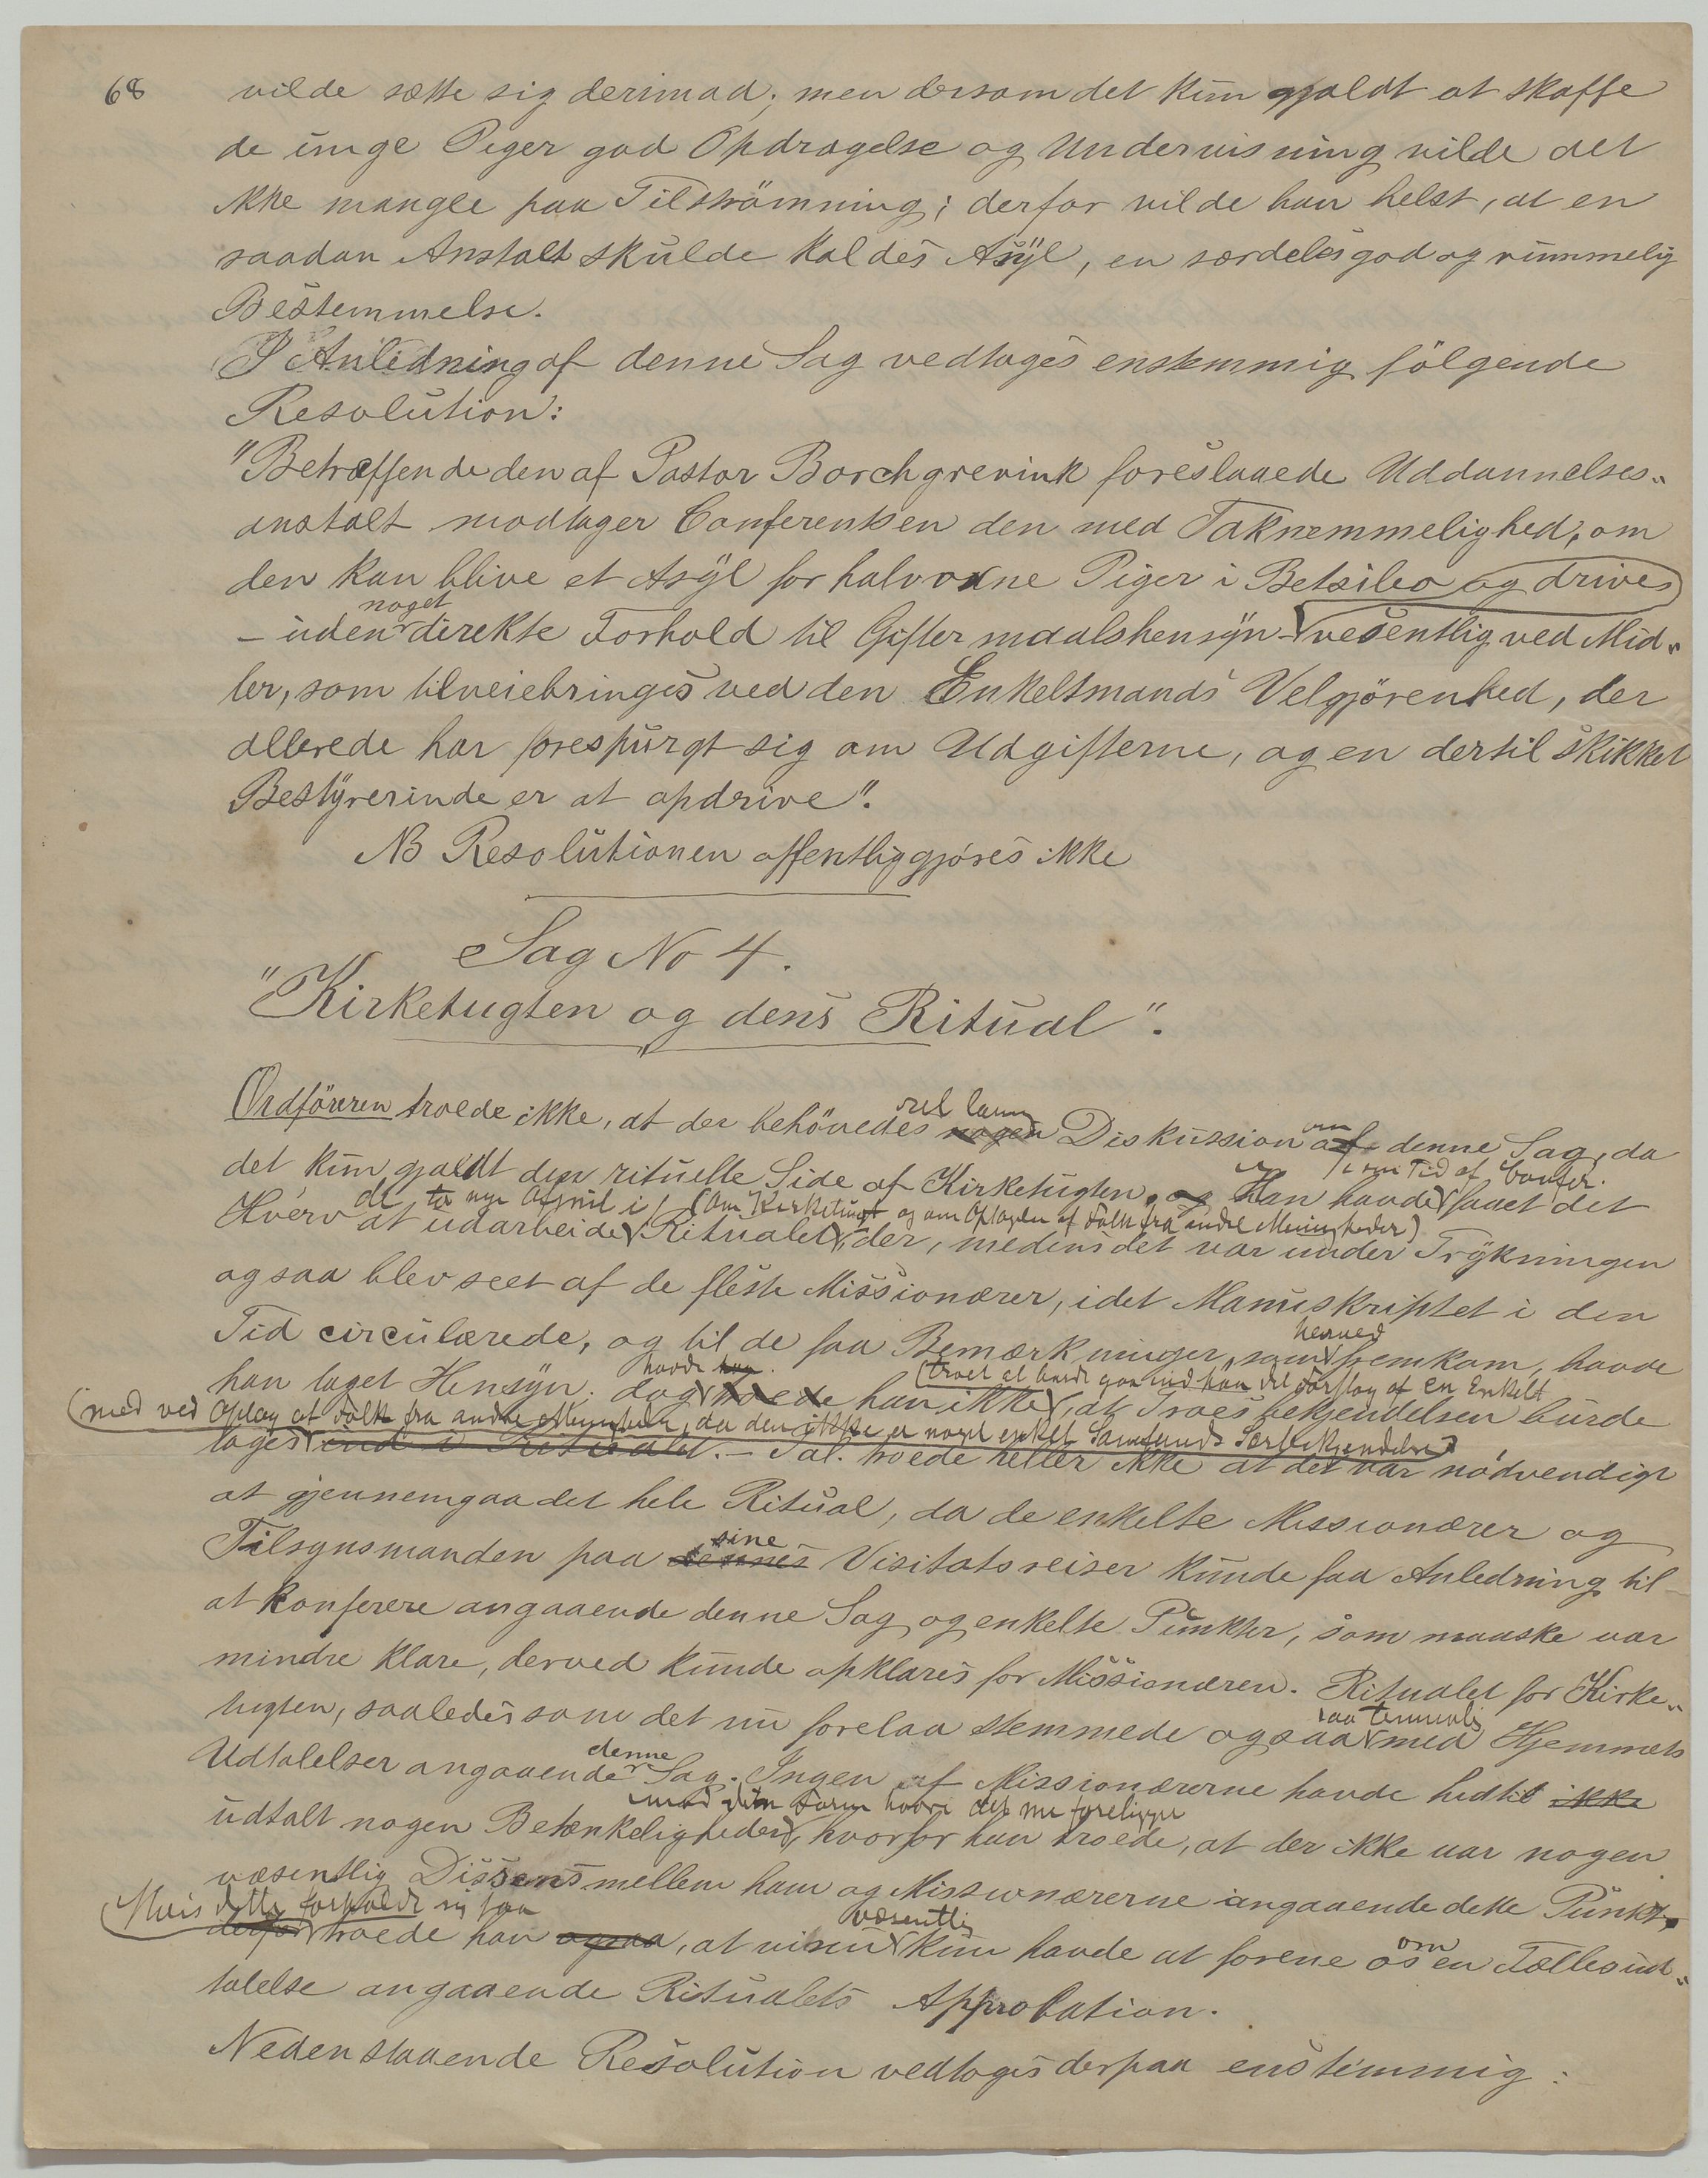 68
vilde sætte sig derimod; men dersom det kun gjaldt at skaffe
de unge Piger god Opdragelse og Undervisning vilde det
ikke mangle paa Tilströmning; derfor vilde han helst, at en
saadan Anstalt skulde kaldes Asyl, en særdeles god og rimmelig
Bestemmelse.
I Anledning af denne Sag vedtoges enstemmig fölgende
Resolution:
"Betræffende den af Pastor Borchgrevink foreslaaede Uddannelses-
anstalt modtager Conferentsen den med Taknemmelighed, om
den kan blive et Asyl for halvoxne Piger i Betsileo og drives
noget
– uden direkte Forhold til Giftermaalshensyn – vesentlig ved Mid-
ler, som tilveiebringes ved den Enkeltmands Velgjörenhed, der
allerede har forespurgt sig om Udgifterne, og en dertil skikket
Bestyrerinde er at opdrive".
NB Resolutionen offentliggjöres ikke
Sag No 4.
"Kirketugten og dens Ritual".
vel lang
Ordföreren troede ikke, at der behövedes nogen Diskussion af denne Sag, da
om
i sin Tid af Confer.
det kun gjaldt den rituelle Side af Kirketugten, og Han havde faaet det
de to nye Afsnit i (om Kirketugt og om Optagelse af Folk fra andre Menigheder)
Hverv at udarbeide Ritualet, der, medens det var under Trykningen
ogsaa blev seet af de fleste Missionærer, idet Manuskriptet i den
herved
Tid circulærede, og til de faa Bemærkninger, som fremkom, havde
havde han (troet at burde gaa ind paa det Forslag af en Enkelt
han taget Hensyn. dog troede han ikke, at Troesbekjendelsen burde
(med ved Optag af Folk fra andre Menigheder, da den ikke er noget enkelt Samfunds Særbekjendelse)
toges ind i Ritualet. – Tal. troede heller ikke at det var nödvendigt
at gjennemgaa det hele Ritual, da de enkelte Missionærer og
sine
Tilsynsmanden paa dennes Visitatsreiser kunde faa Anledning til
at konferere angaaende denne Sag og enkelte Punkter, som maaske var
mindre klare, derved kunde opklares for Missionæren. Ritualet for Kirke-
saa temmelig
tugten, saaledes som det nu forelaa stemmede ogsaa med Hjemmets
denne
Udtalelser angaaende Sag. Ingen af Missionærerne havde hidtil ikke
mod den Form hvori det nu foreligger
udtalt nogen Betænkeligheder, hvorfor han troede, at der ikke var nogen
væsentlig Dissens mellem ham og Missionærerne angaaende dette Punkt,
Hvis dette forholdt sig saa
derfor troede han ogsaa, at vi nu kun havde at forene os en Fællesud-
væsentlig
om
talelse angaaende Ritualets Approbation.
Nedenstaaende Resolution vedtoges derpaa enstemmig: